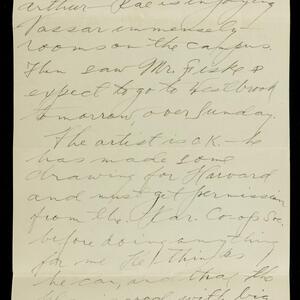 arthur - Rae is enjoying
Vassar immensely -
rooms on the campus.
Then saw Mr. Fiske &
expect to go to Westbrook
tomorrow, over Sunday.
The artist is O.K. - he
has made some
drawing for Harvard
and must get permission
from the Har. Co-op Soc.
before doing anything
for me He thinks
he can, and that the
with big